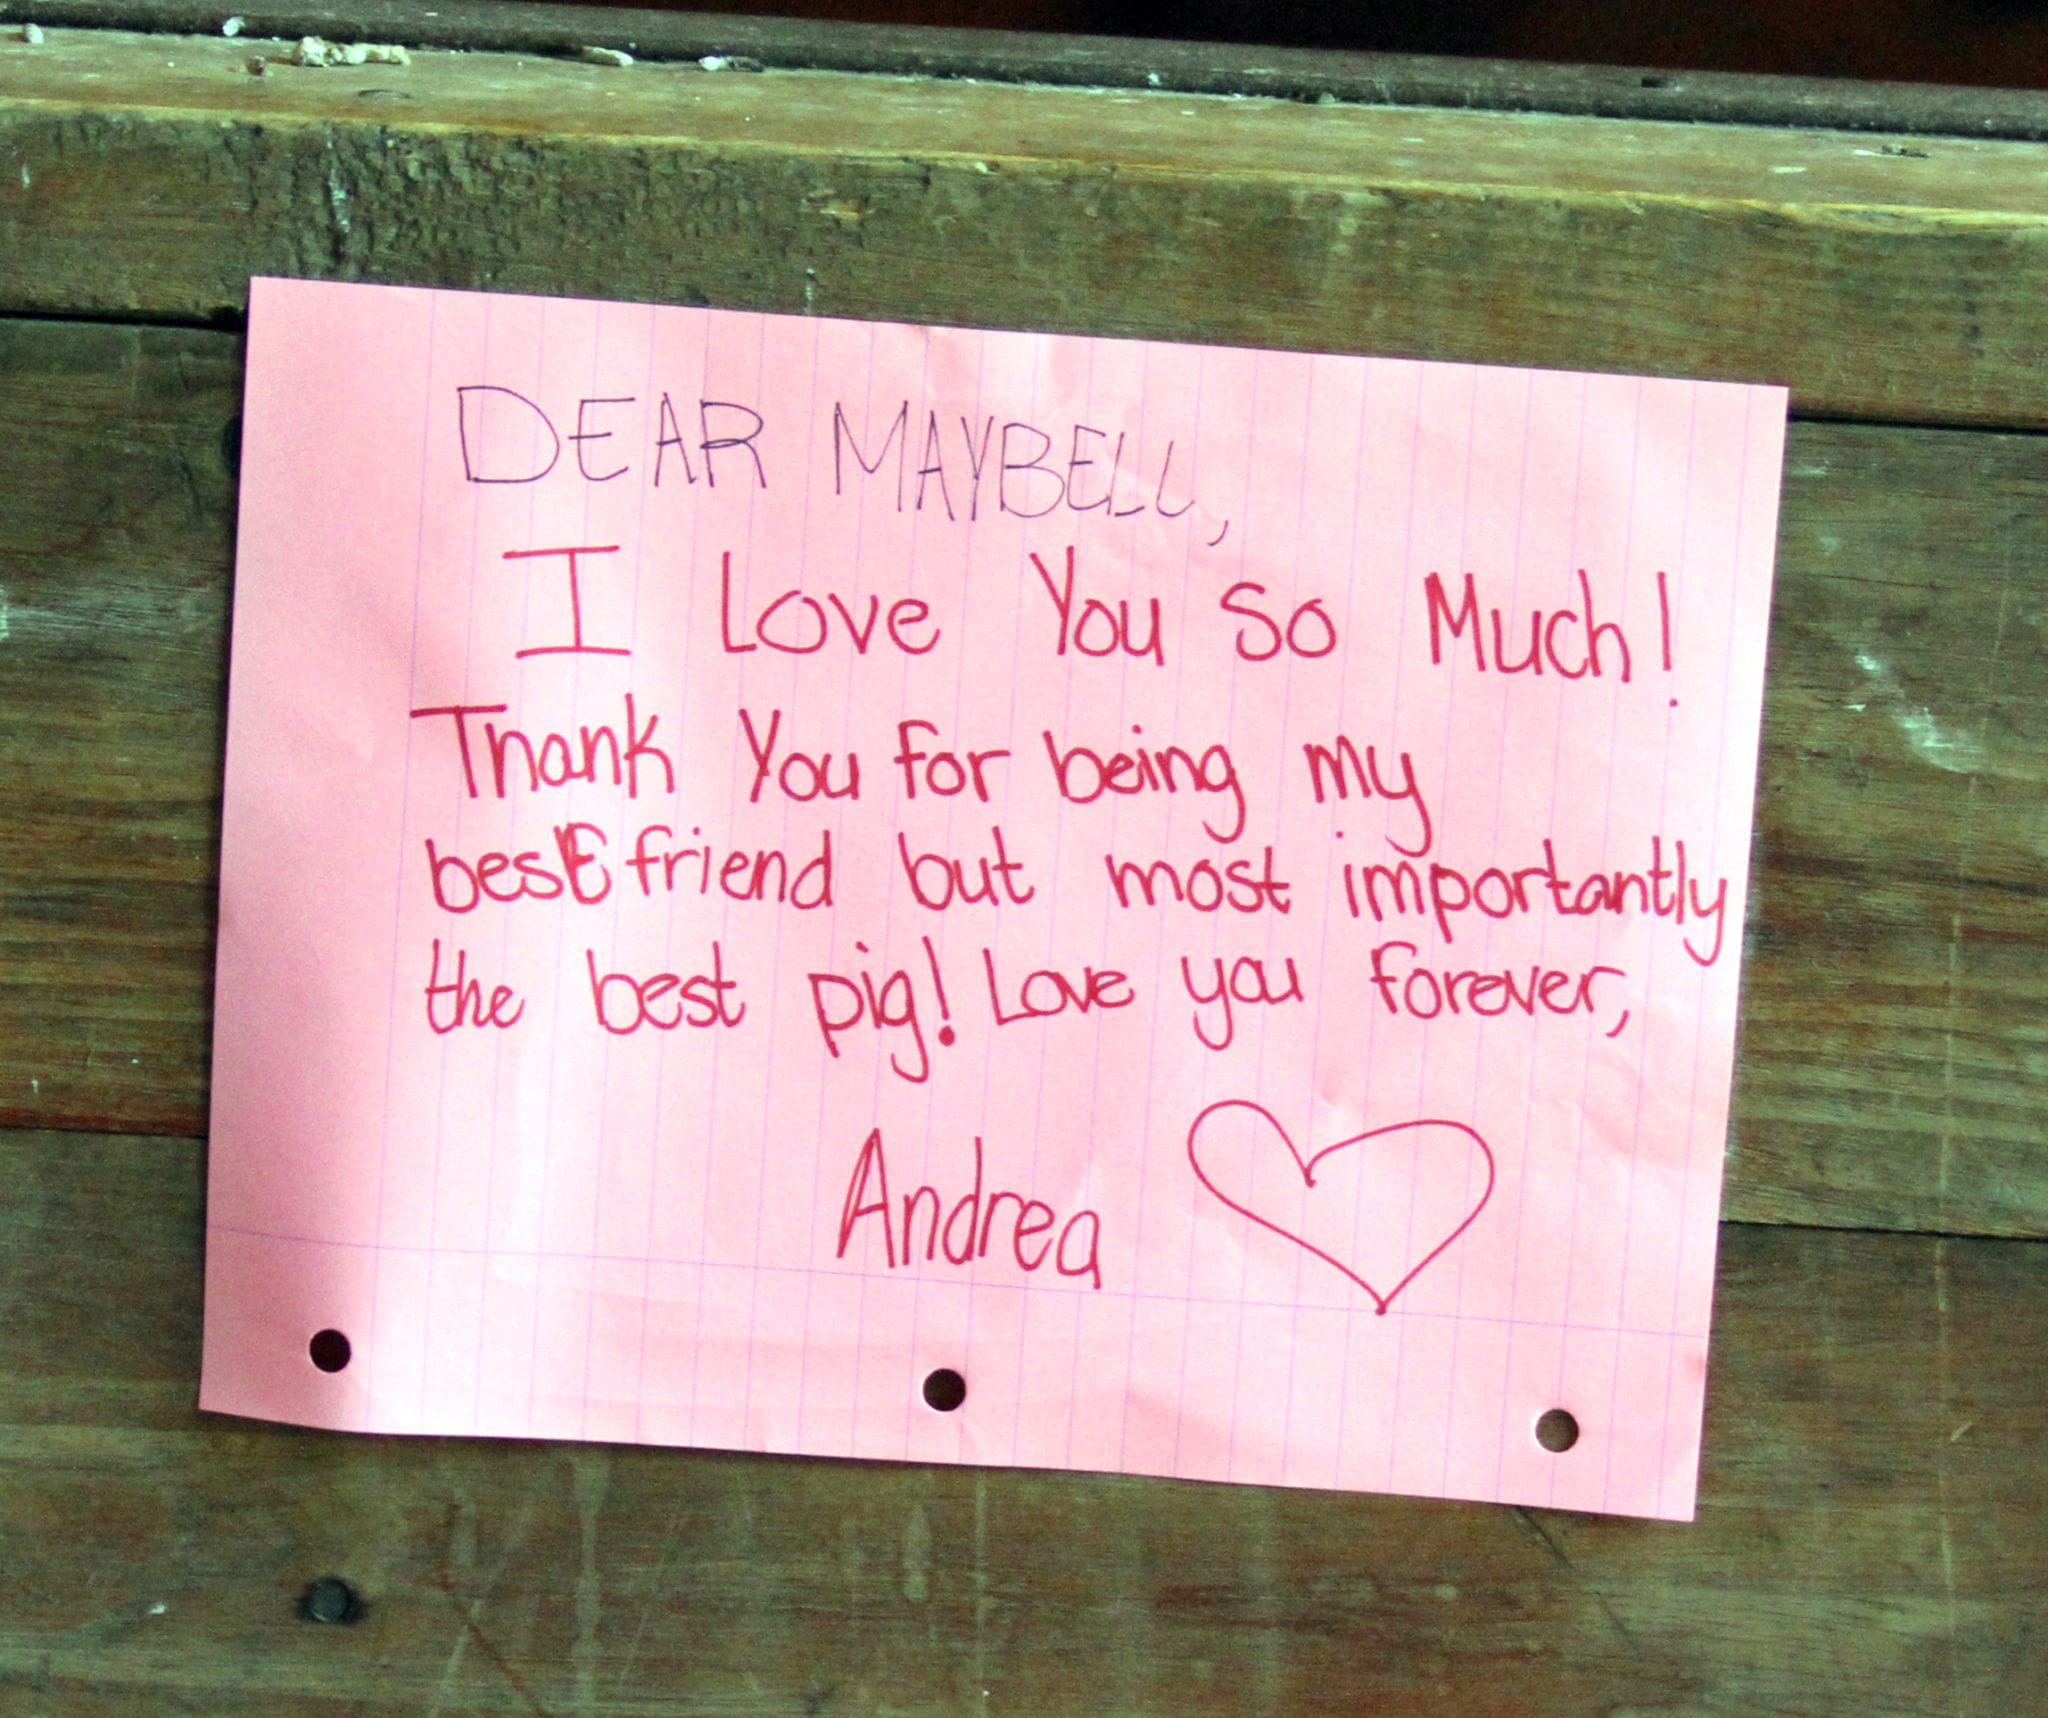 DEAR MAYBELL,
I Love You So Much!
Thank You for being my
best friend but most importantly
the best pig! Love you forever,
Andrea